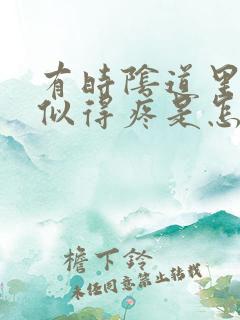 有时阴道里
似得疼是怎
檐下铃
未经同意禁止转载